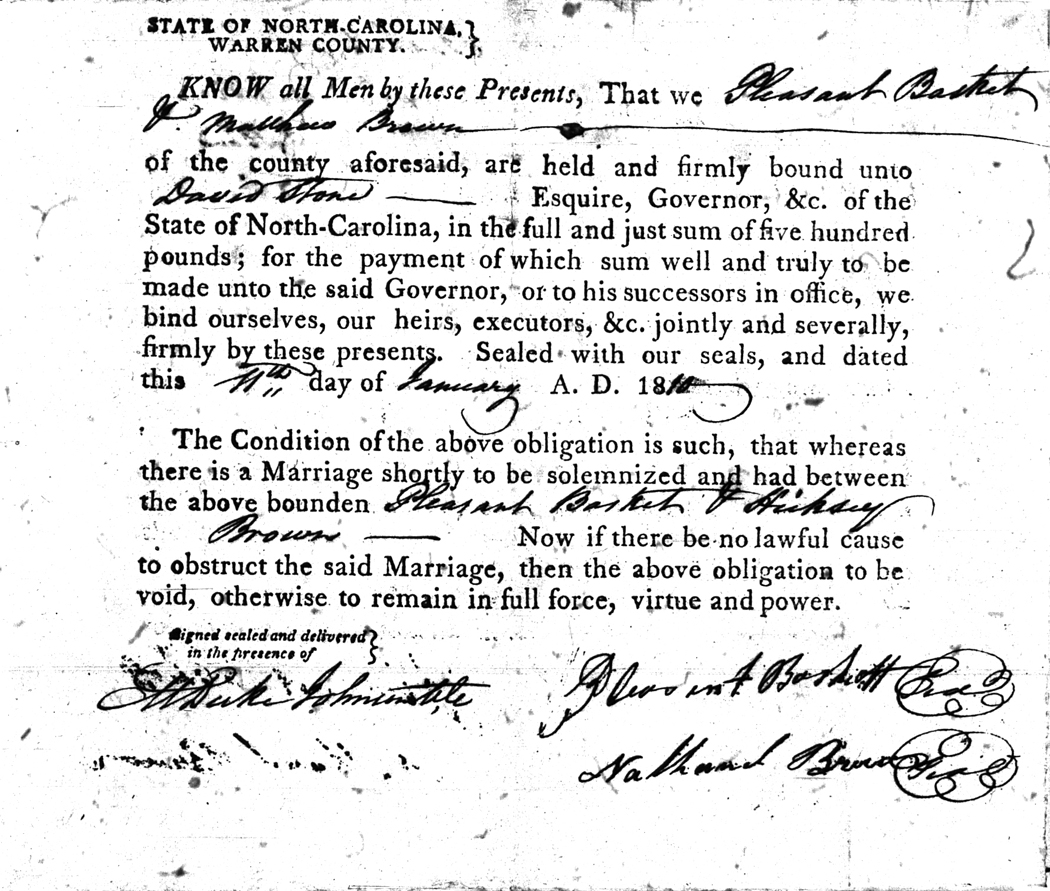 STATE OF NORTH-CAROLINA,}
WARREN COUNTY.
KNOW all Men by these Presents, That we Pleasant Basket
& Matthew Brown
of the county aforesaid, are held and firmly bound unto
David Stone Esquire, Governor, &c. of the
State of North-Carolina, in the full and just sum of five hundred
pounds; for the payment of which sum well and truly to be
made unto the said Governor, or to his successors in office, we
bind ourselves, our heirs, executors, &c. jointly and severally,
firmly by these presents. Sealed with our seals, and dated
this 11th day of January A. D. 1810
The Condition of the above obligation is such, that whereas
there is a Marriage shortly to be solemnized and had between
the above bounden Pleasant Basket & Hicksey
Brown Now if there be no lawful cause
to obstruct the said Marriage, then the above obligation to be
void, otherwise to remain in full force, virtue and power.
Signed sealed and delivered}
in the presence of
Pleasant Baskett Seal
Johnson
Nathaniel Brown Seal